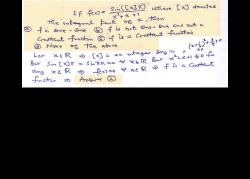 If f(x) = sin([x]π) / x²+x+1, where [x] denotes
the integral part of x, then
ⓐ f is one-one ⓑ f is not one-one and not a
constant function ⓒ f is a constant function
ⓓ None of the above
Let x∈R ⇒ [x] is an integer
But sin[x]π = sin nπ = 0 ∀ x∈R But x²+x+1 ≠ 0 for
any x∈R ⇒ f(x) = 0 ∀ x∈R ⇒ f is a constant
function ⇒ Answer ⓒ